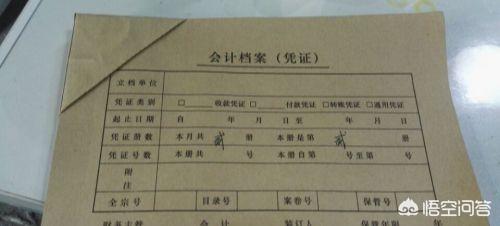 会计档案（凭证）
立档单位
凭证类别 □____收款凭证 □____付款凭证 □转账凭证 □通用凭证
起止日期 自 年 月 日至 年 月 日
凭证册数 本月共 贰 册 本册是第 贰 册
凭证号数 本册共 号 本册自第 号至第 号
附注
全宗号 目录号 案卷号 保管号
财务主管 会计 装订人 保管年限 年
悟空问答